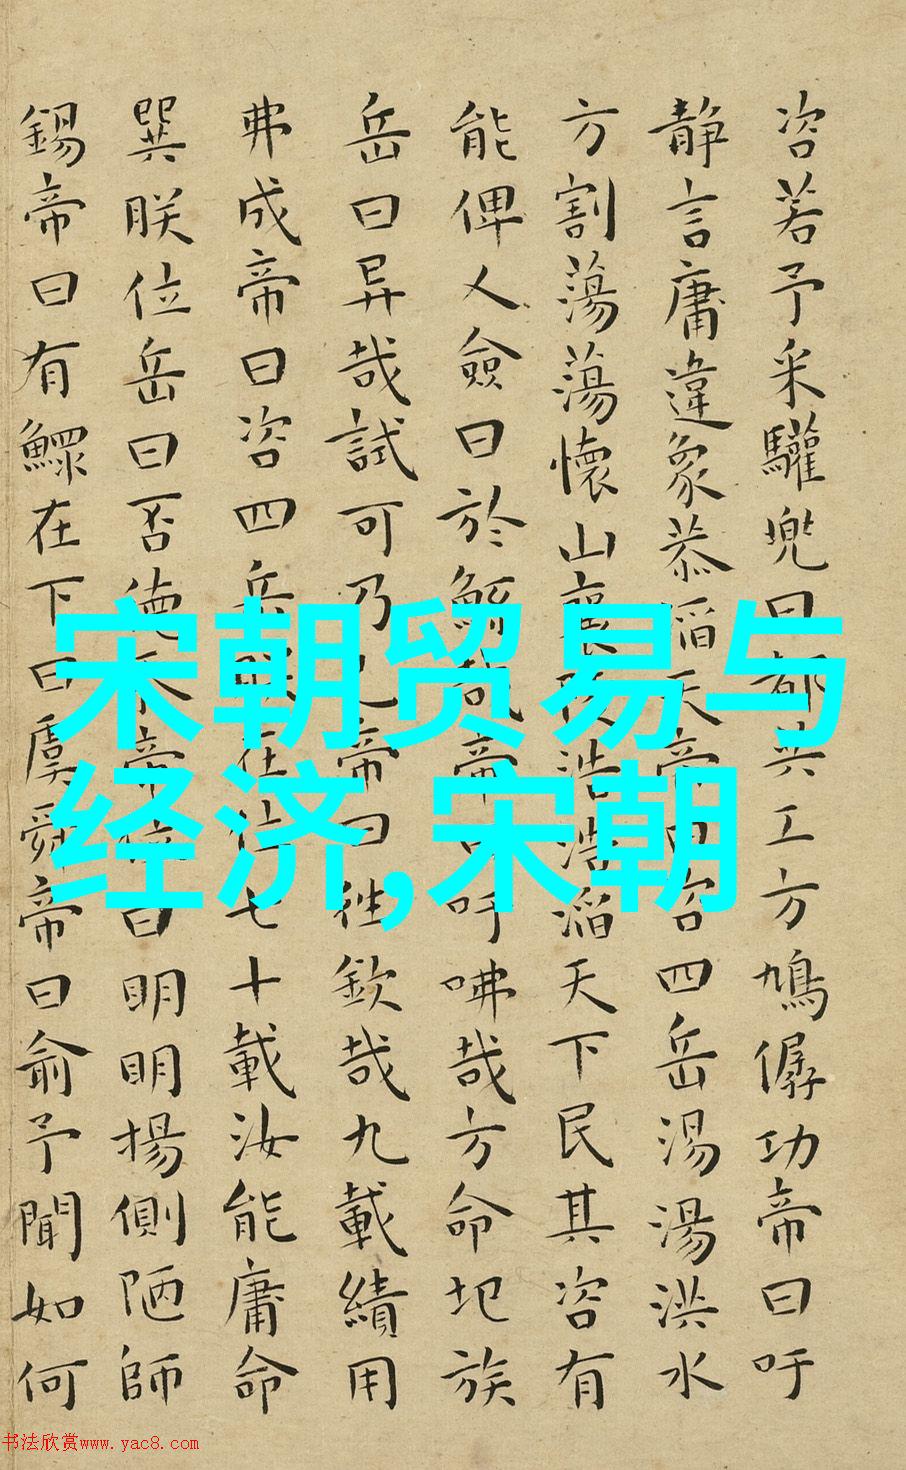 咨若予采驩兜曰都共工方鳩僝功帝曰吁
静言庸違象恭滔天帝曰咨四岳湯湯洪水
方割蕩蕩懷山襄陵浩浩滔天下民其咨有
能俾乂僉曰於鯀哉帝曰吁咈哉方命圮族
岳曰异哉試可乃已帝曰往欽哉九載績用
弗成帝曰咨四岳朕在位七十載汝能庸命
巽朕位岳曰否德忝帝位曰明明揚側陋師
錫帝曰有鰥在下曰虞舜帝曰俞予聞如何
宋朝贸易与
经济,宋朝
书法欣赏www.yac8.com